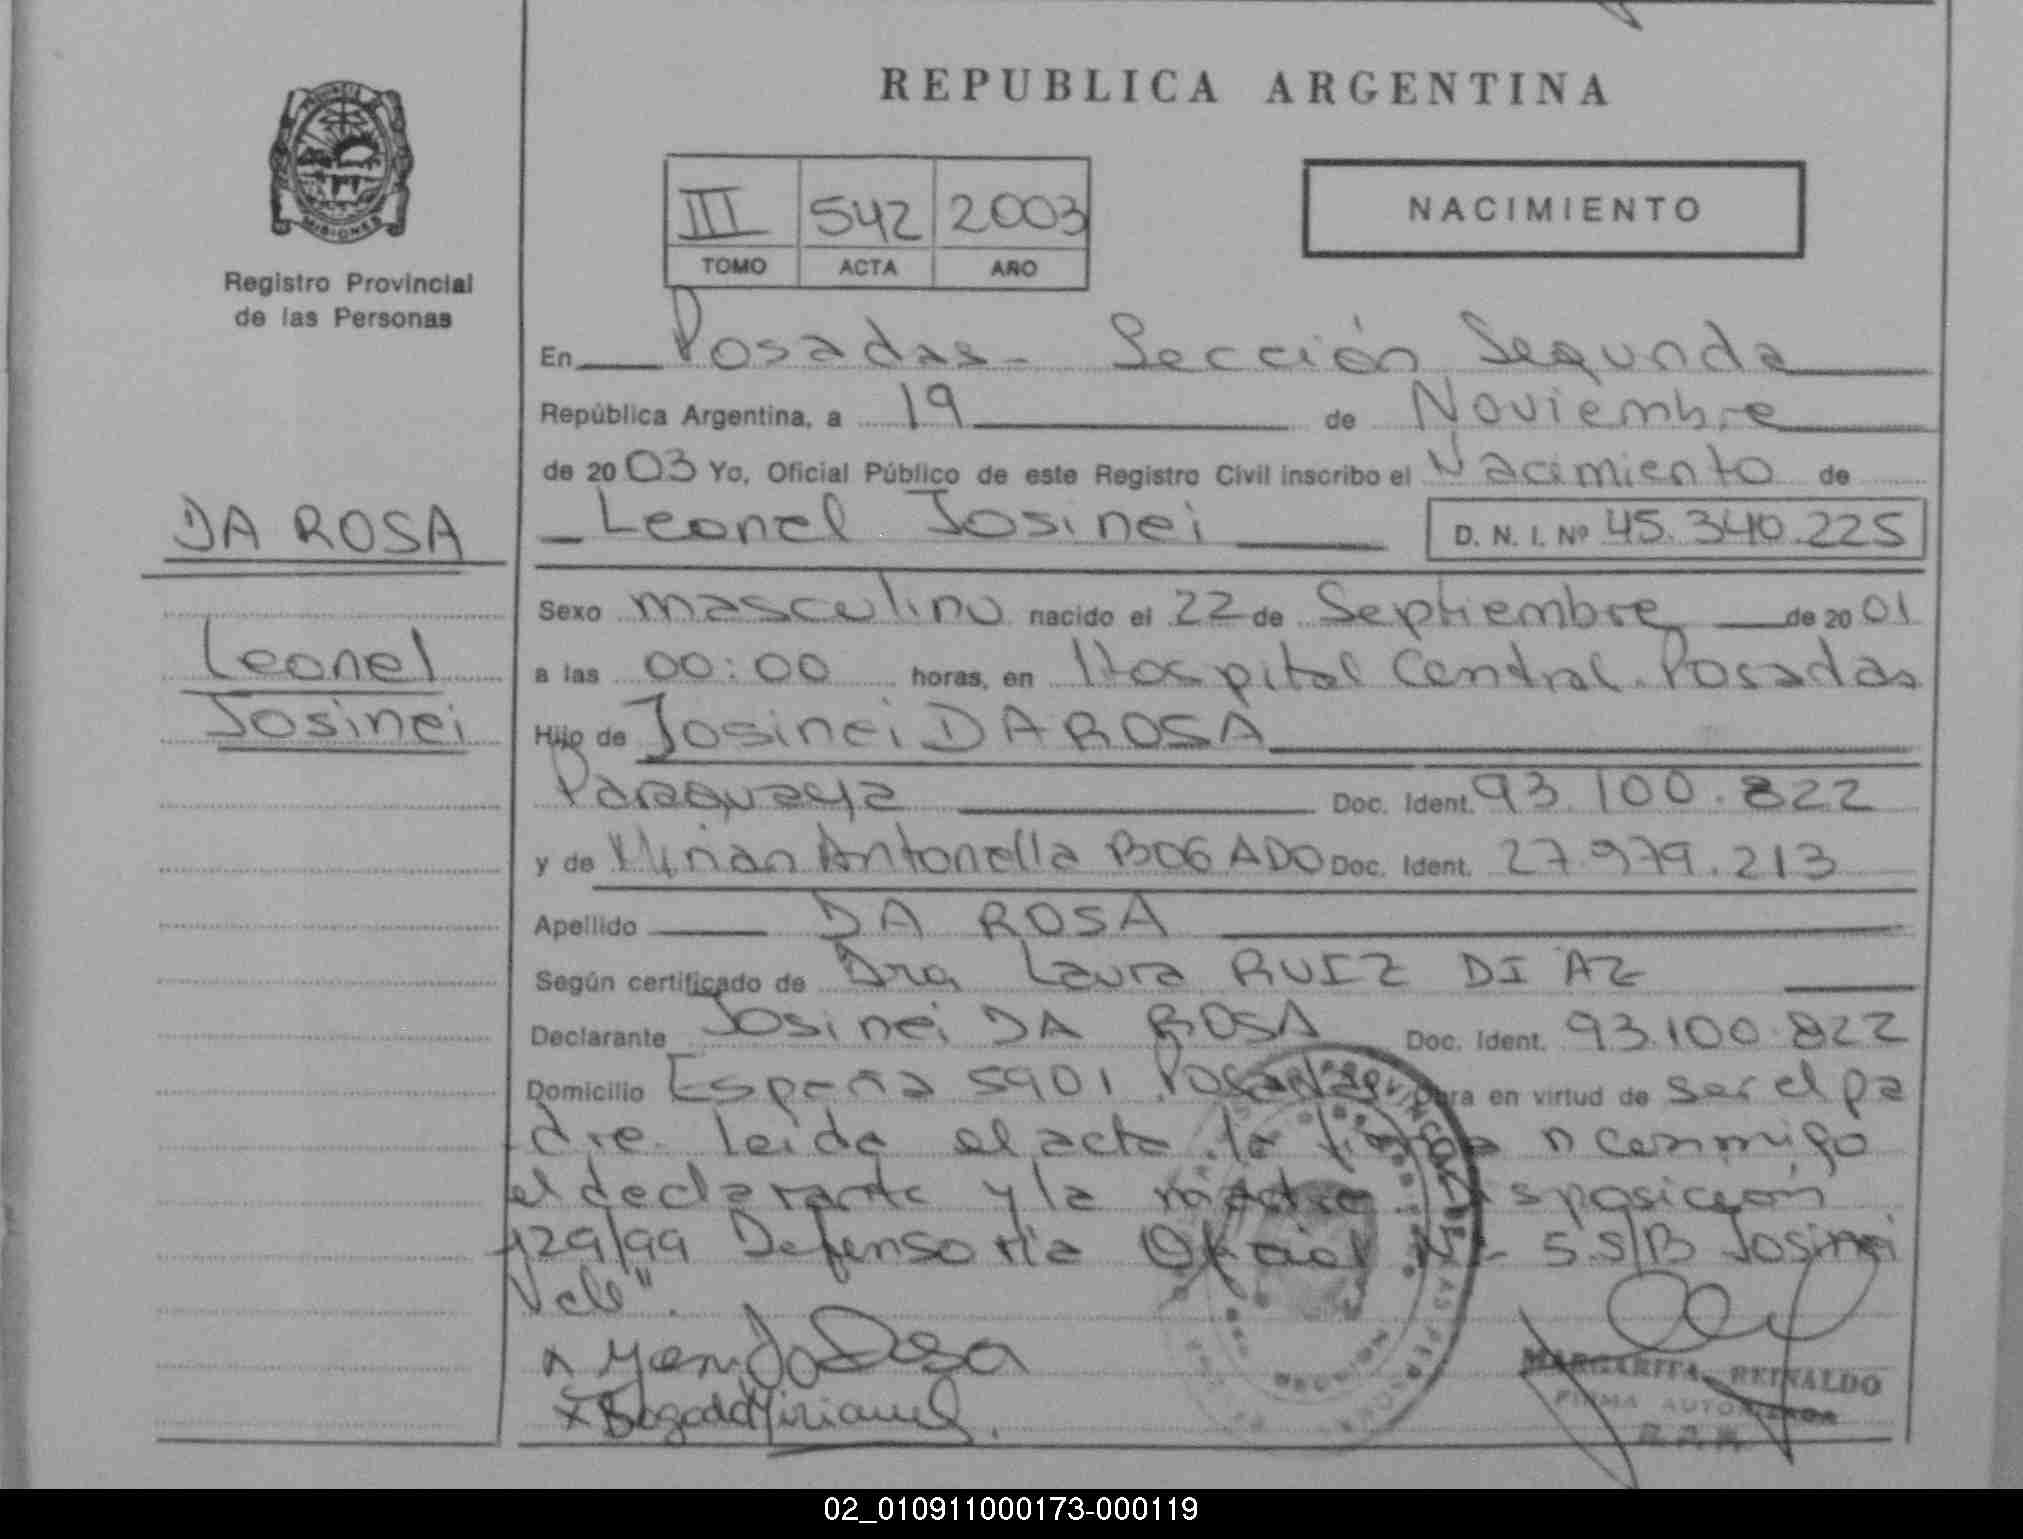 REPUBLICA ARGENTINA
PROVINCIA DE
MISIONES
Registro Provincial
de las Personas
III 542 2003
TOMO ACTA AÑO
NACIMIENTO
En Posadas - Sección Segunda
República Argentina, a 19 de Noviembre
de 2003 Yo, Oficial Público de este Registro Civil inscribo el Nacimiento de
Leonel Josinei D. N. I. Nº 45.340.225
DA ROSA
Leonel
Josinei
Sexo masculino nacido el 22 de Septiembre de 2001
a las 00:00 horas, en Hospital Central. Posadas
Hijo de Josinei DA ROSA
Paraguaya Doc. Ident. 93.100.822
y de Mirian Antonella BOGADO Doc. Ident. 27.979.213
Apellido DA ROSA
Según certificado de Dra Laura RUIZ DIAZ
Declarante Josinei DA ROSA Doc. Ident. 93.100.822
Domicilio España 5901 Posadas Obra en virtud de ser el pa
dre. Leida el acta la firman conmigo
el declarante y la madre Disposición
129/99 Defensoria Oficial Nº 5 S/B Josinei
Vale".
Bogado Mirian
MARGARITA REINALDO
FIRMA AUTORIZADA
02_010911000173-000119